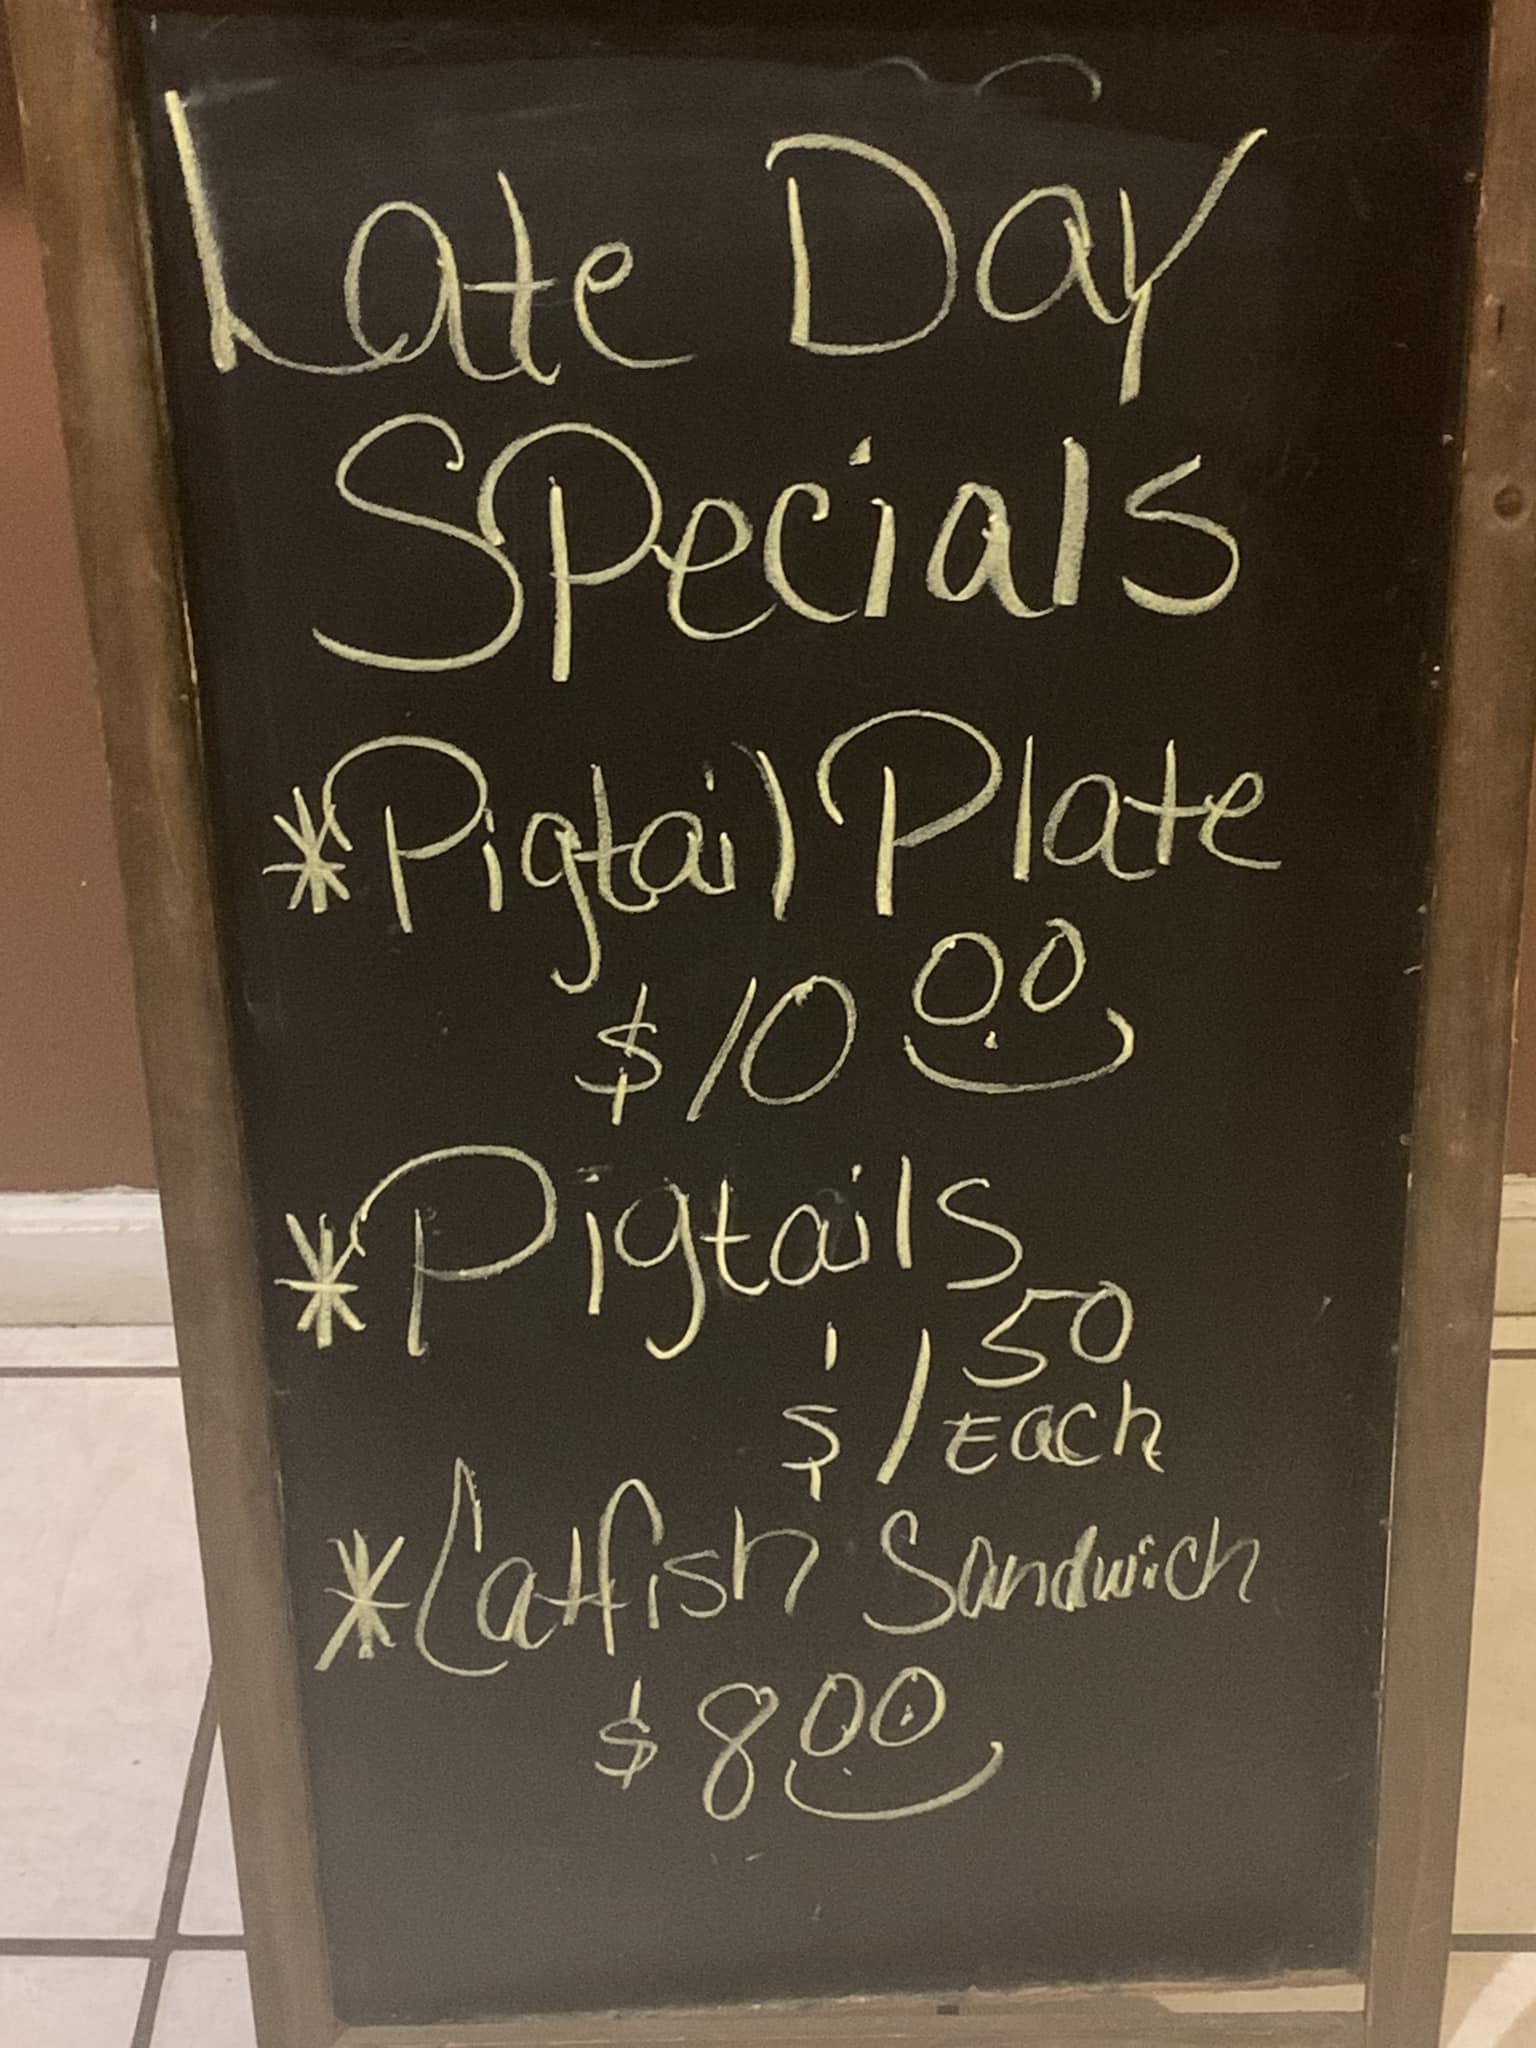 Late Day
Specials
*Pigtail Plate
$10 00
*Pigtails
$1 50
Each
*Catfish Sandwich
$8 00